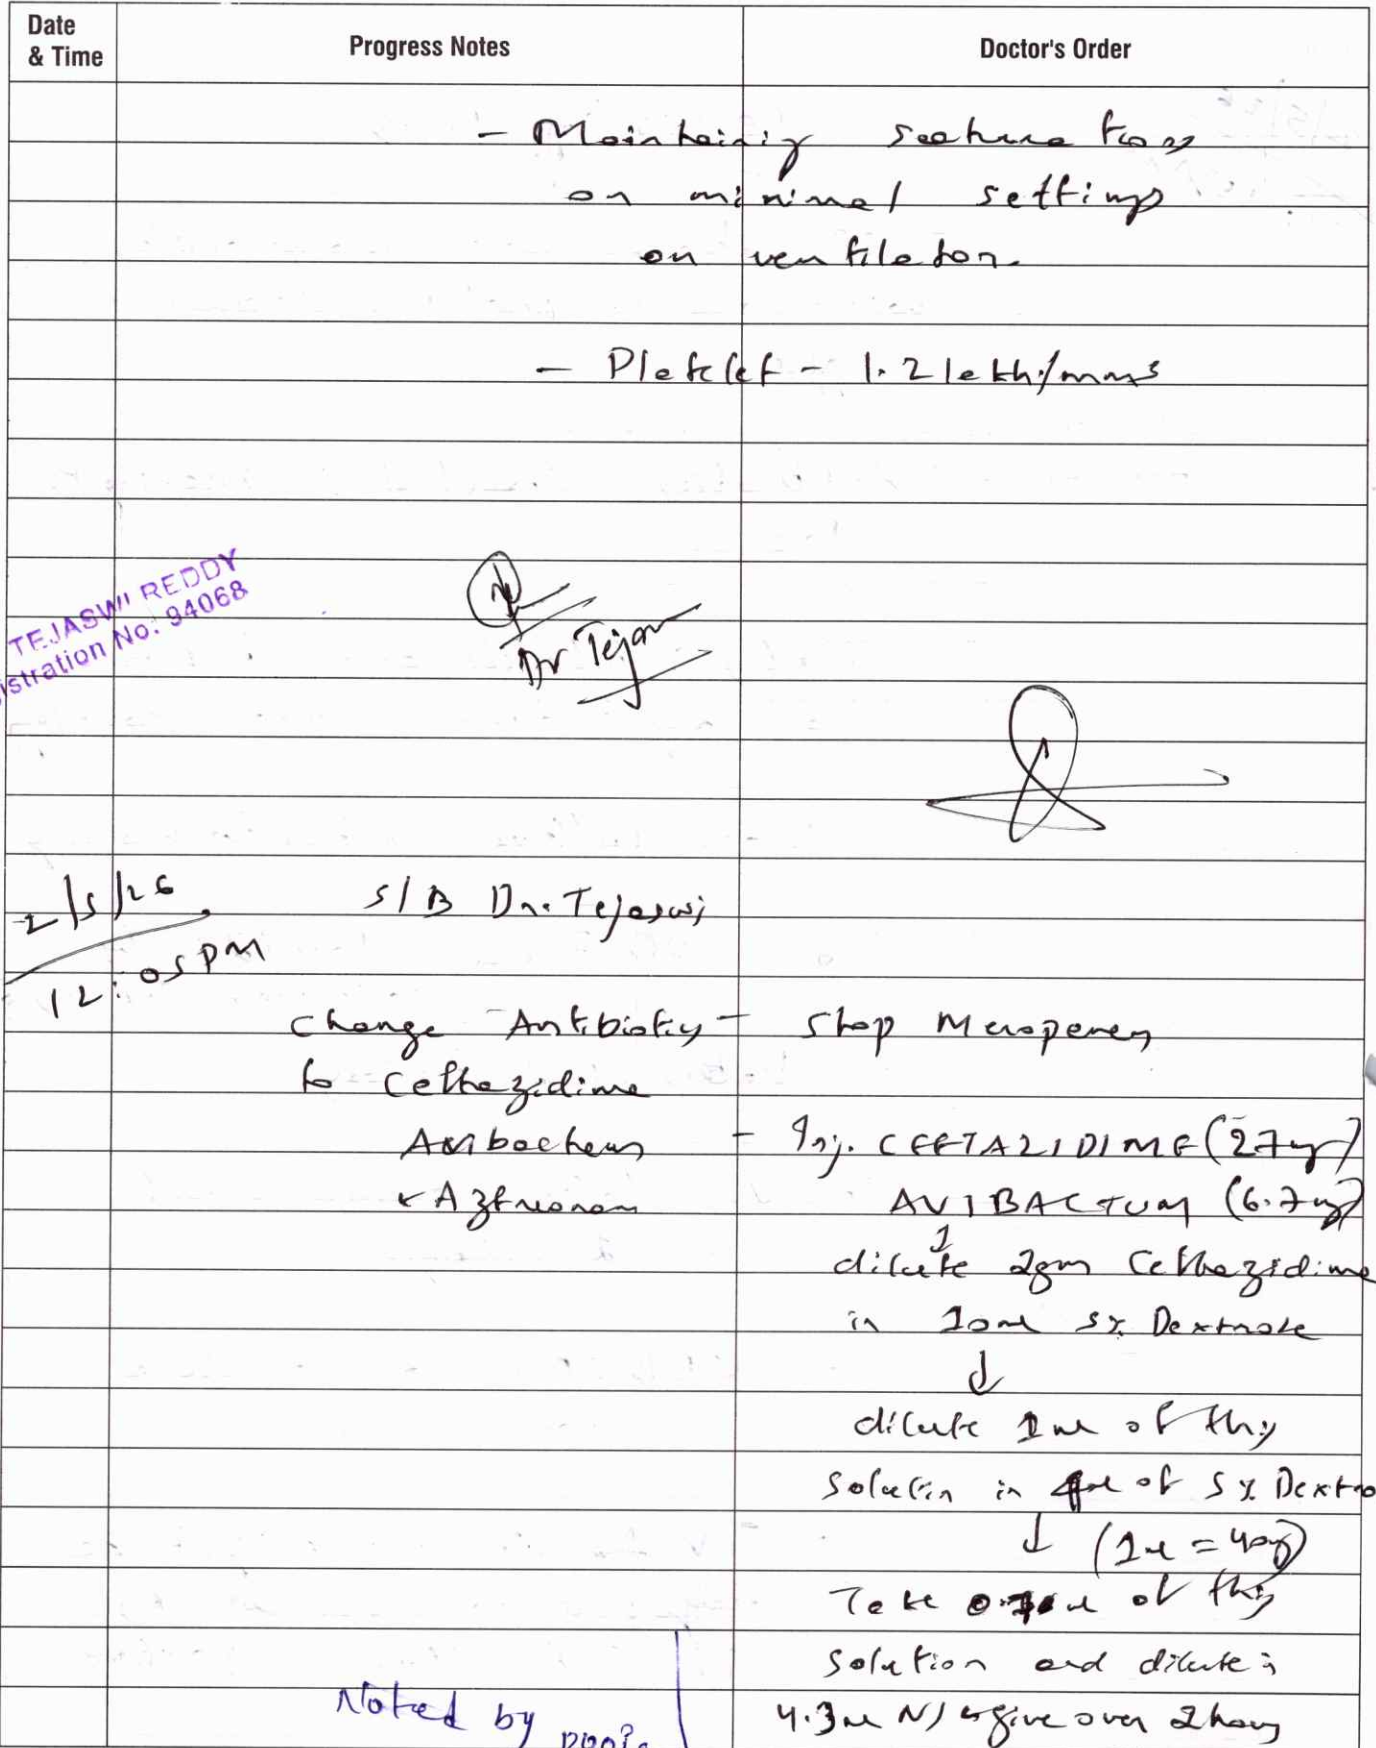 Date & Time
Progress Notes
Doctor's Order
- Maintaining saturations
on minimal settings
on ventilator.
- Platelet - 1.2 lakh/mm3
TEJASWI REDDY
istration No: 94068
Dr Tejas
2/5/26
12:05 PM
S/B Dr. Tejaswi
Change Antibiotics
to Ceftazidime
Avibactum
+ Aztreonam
- Stop Meropenem
- Inj. CEFTAZIDIME (27mg)
AVIBACTUM (6.7mg)
dilute 2gm Ceftazidime
in 10ml 5% Dextrose
↓
dilute 1ml of this
solution in of 5% Dextro
↓ (1ml = 40mg)
Take of this
solution and dilute in
4.3ml NS & give over 2hours
Noted by